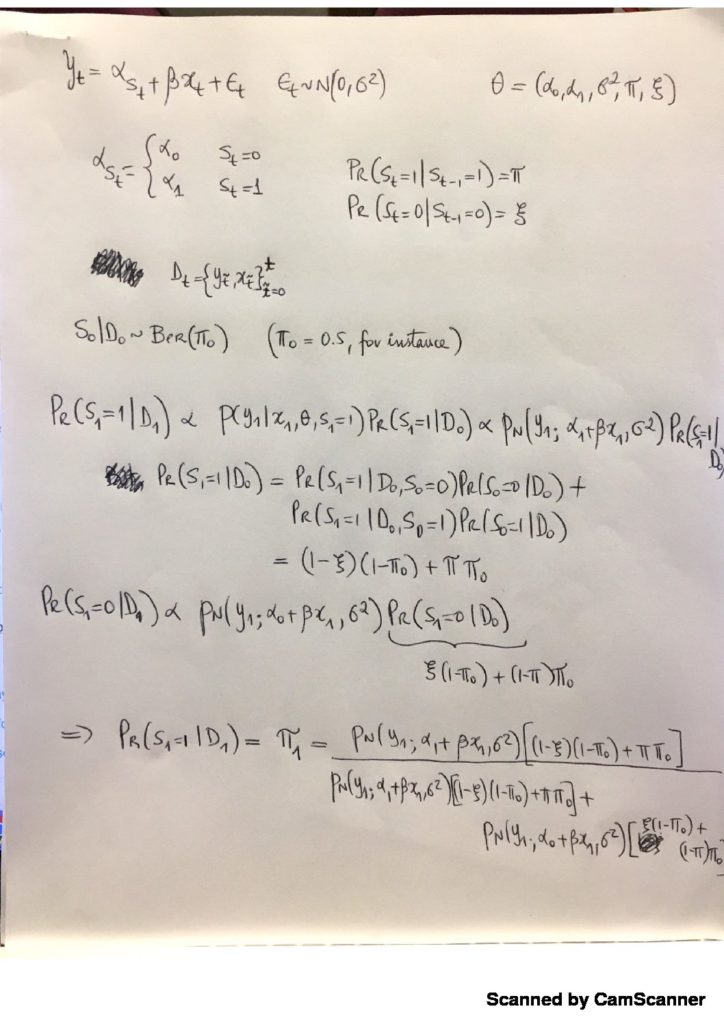 y_t = α_{S_t} + βx_t + ε_t   ε_t ~ N(0, σ²)   θ = (α_0, α_1, σ², π, ξ)
α_{S_t} = { α_0   S_t = 0
α_1   S_t = 1
PR(S_t = 1 | S_{t-1} = 1) = π
PR(S_t = 0 | S_{t-1} = 0) = ξ
D_t = {y_{t̃}, x_{t̃}}_{t̃=0}^{t}
S_0|D_0 ~ BER(π_0)   (π_0 = 0.5, for instance)
PR(S_1=1|D_1) ∝ p(y_1|x_1, θ, S_1=1) PR(S_1=1|D_0) ∝ p_N(y_1; α_1+βx_1, σ²) PR(S_1=1|D_0)
PR(S_1=1|D_0) = PR(S_1=1|D_0, S_0=0) PR(S_0=0|D_0) +
PR(S_1=1|D_0, S_0=1) PR(S_0=1|D_0)
= (1-ξ)(1-π_0) + π π_0
PR(S_1=0|D_1) ∝ p_N(y_1; α_0+βx_1, σ²) PR(S_1=0|D_0)
ξ(1-π_0) + (1-π)π_0
⇒ PR(S_1=1|D_1) = π_1 = p_N(y_1; α_1+βx_1, σ²)[(1-ξ)(1-π_0)+π π_0]
p_N(y_1; α_1+βx_1, σ²)[(1-ξ)(1-π_0)+π π_0] +
p_N(y_1; α_0+βx_1, σ²)[ξ(1-π_0) +
(1-π)π_0
Scanned by CamScanner